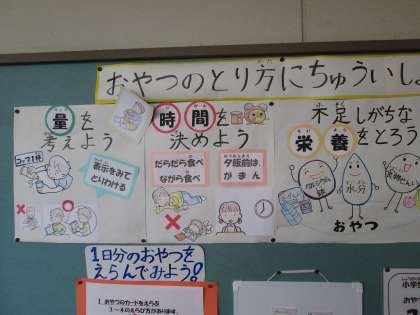 おやつのとり方にちゅういし
量を
考えよう
コップ1杯
表示をみて
とりわける
時間を
決めよう
だらだら食べ
ながら食べ
夕飯前は、
がまん
不足しがちな
栄養をとろう
カルシウム
水分
おやつ
1日分のおやつを
えらんでみよう!
1 おやつのカードをえらぶ
小学生